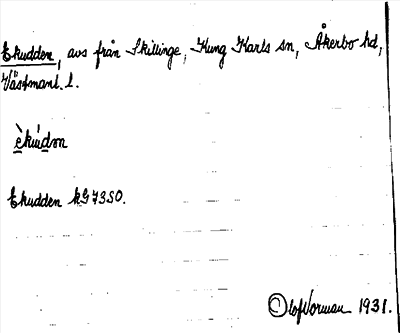 Ekudden, avs från Skillinge, Kung Karls sn, Åkerbo hd,
Västmanl. l.
èkúdən
Ekudden kG7350.
Olof Norman 1931.